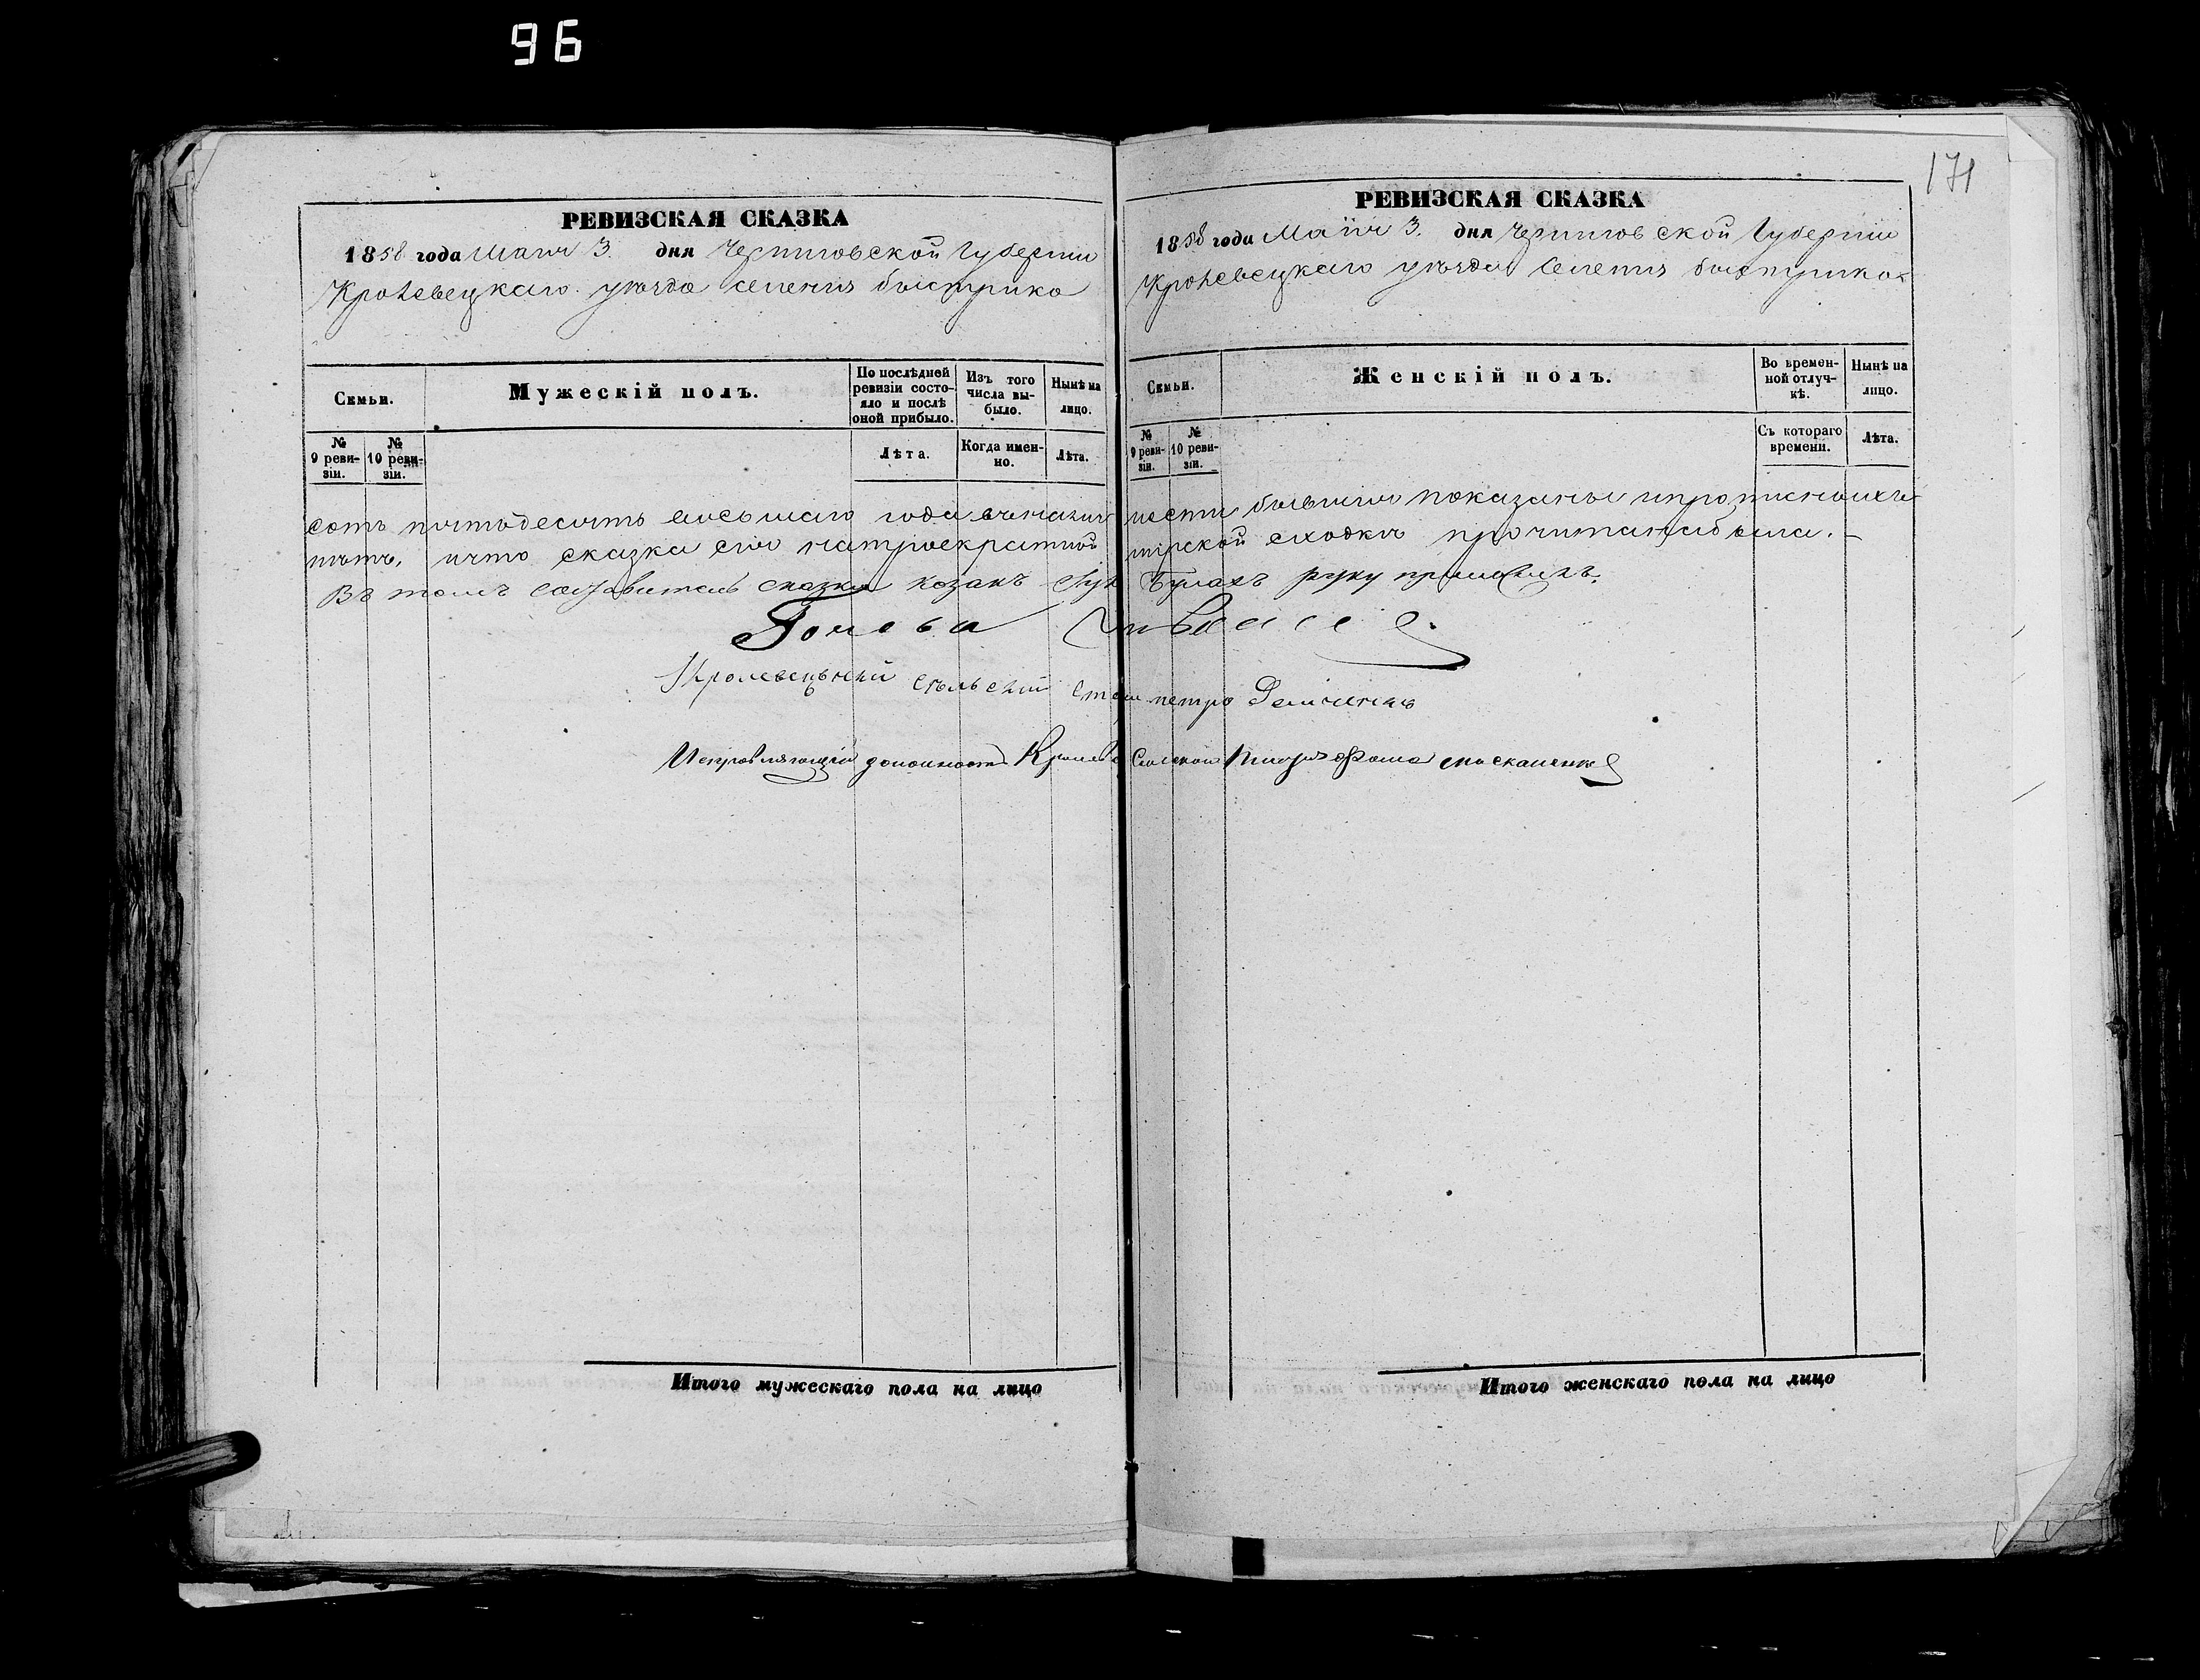 96
171
РЕВИЗСКАЯ СКАЗКА
1858 года Маия 3. дня Черниговской Губернии
Кролевецкаго уезда селения быстрика
Семьи.
Мужескій полъ.
По послѣдней ревизіи состояло и послѣ оной прибыло.
Изъ того числа выбыло.
Нынѣ на лицо.
№ 9 ревизіи.
№ 10 ревизіи.
Лѣта.
Когда именно.
Лѣта.
РЕВИЗСКАЯ СКАЗКА
1858 года Маия 3. дня Черниговской Губернии
Кролевецкаго уезда Селения быстрика
Семьи.
Женскій полъ.
Во временной отлучкѣ.
Нынѣ на лицо.
№ 9 ревизіи.
№ 10 ревизіи.
Съ котораго времени.
Лѣта.
сотъ пятьдесятъ восьмаго года показаны
нетъ, что сказка сия натроекратной мірской сходке прочитана была.
Въ томъ составитель сказки козакъ Булахъ руку приложилъ.
Голова
Кролевецький сельский петро
Исправляющій должность Сельскаго Писаря Фома Москаленко
Итого мужескаго пола на лицо
Итого женскаго пола на лицо